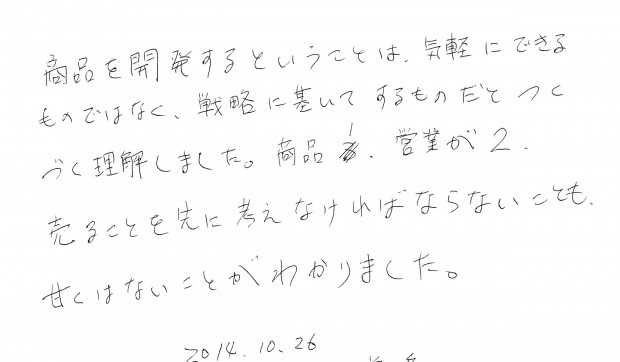 商品を開発するということは、気軽にできる
ものではなく、戦略に基いてするものだとつく
づく理解しました。商品が1、営業が2.
売ることを先に考えなければならないことも、
甘くはないことがわかりました。
2014.10.26